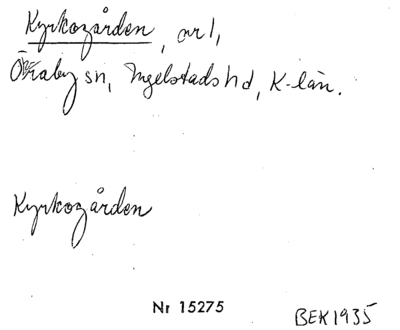 Kyrkogården, nr 1,
Öraby sn, Ingelstads hd, K-län.
Kyrkogården
Nr 15275
BEK 1935